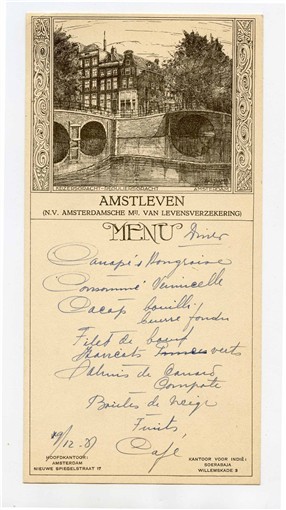 KEIZERSGRACHT-REGULIERSGRACHT AMSTERDAM
AMSTLEVEN
(N.V. AMSTERDAMSCHE Mij. VAN LEVENSVERZEKERING)
MENU Diner
Canapé's Hongroise
Consommé Vermicelle
Cacap bouilli,
beurre fondu
Filet de boeuf
Haricots Princes verts
Salmis de Canard
Compote
Boules de neige
Fruits
Café
19/12.37
HOOFDKANTOOR:
AMSTERDAM
NIEUWE SPIEGELSTRAAT 17
KANTOOR VOOR INDIË:
SOERABAJA
WILLEMSKADE 5